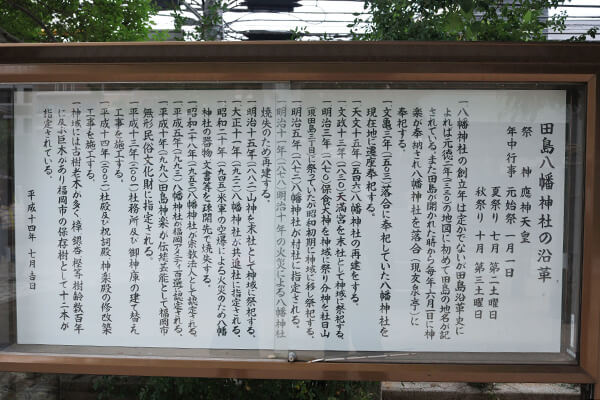 田島八幡神社の沿革
祭神 應神天皇
年中行事 元始祭 一月一日
夏祭り 七月 第二土曜日
秋祭り 十月 第三土曜日
一八幡神社の創立年は定かでないが田島沿革史に
よれば元徳二年(一三三〇)の地図に初めて田島の地名が記
されている。また田島が開かれた時から毎年六月一日に神
楽が奉納され八幡神社を落合(現友泉亭)に
奉祀する。
一文亀三年(一五〇三)落合に奉祀していた八幡神社を
現在地に遷座奉祀する。
一天文十五年(一五四六)八幡神社の再建をする。
一文政十三年(一八三〇)天満宮を末社として神域に祭祀する。
一明治三年(一八七〇)保食大神を神域に祭り分神を社日山
(現田島三丁目)に祭っていたが昭和初期に神域に移し祭祀する。
一明治五年(一八七二)八幡神社が村社に指定される。
一明治十一年(一八七八)明治十年の火災による八幡神社
焼失のため再建する。
一明治十五年(一八八二)山神を末社として神域に祭祀する。
一大正十一年(一九二二)八幡神社が共進社に指定される。
一昭和二十年(一九四五)米軍の空爆による火災のため八幡
神社の器物、文書等を疎開先で焼失する。
一昭和二十八年(一九五三)八幡神社が宗教法人として認定される。
一平成五年(一九九三)八幡神社が福岡アメニティ百選に認定される。
一平成十年(一九九八)田島神楽の伝統芸能として福岡市
無形民俗文化財に指定される。
一平成十三年(二〇〇一)社務所及び御神庫の建て替え
工事を施工する。
一平成十四年(二〇〇二)社殿及び祝詞殿、神楽殿の修改築
工事を施工する。
一神域には古樹老木が多く樟、銀杏、樫等樹齢数百年
に及ぶ巨木があり福岡市の保存樹として十二本が
指定されている。
平成十四年 七月 吉日